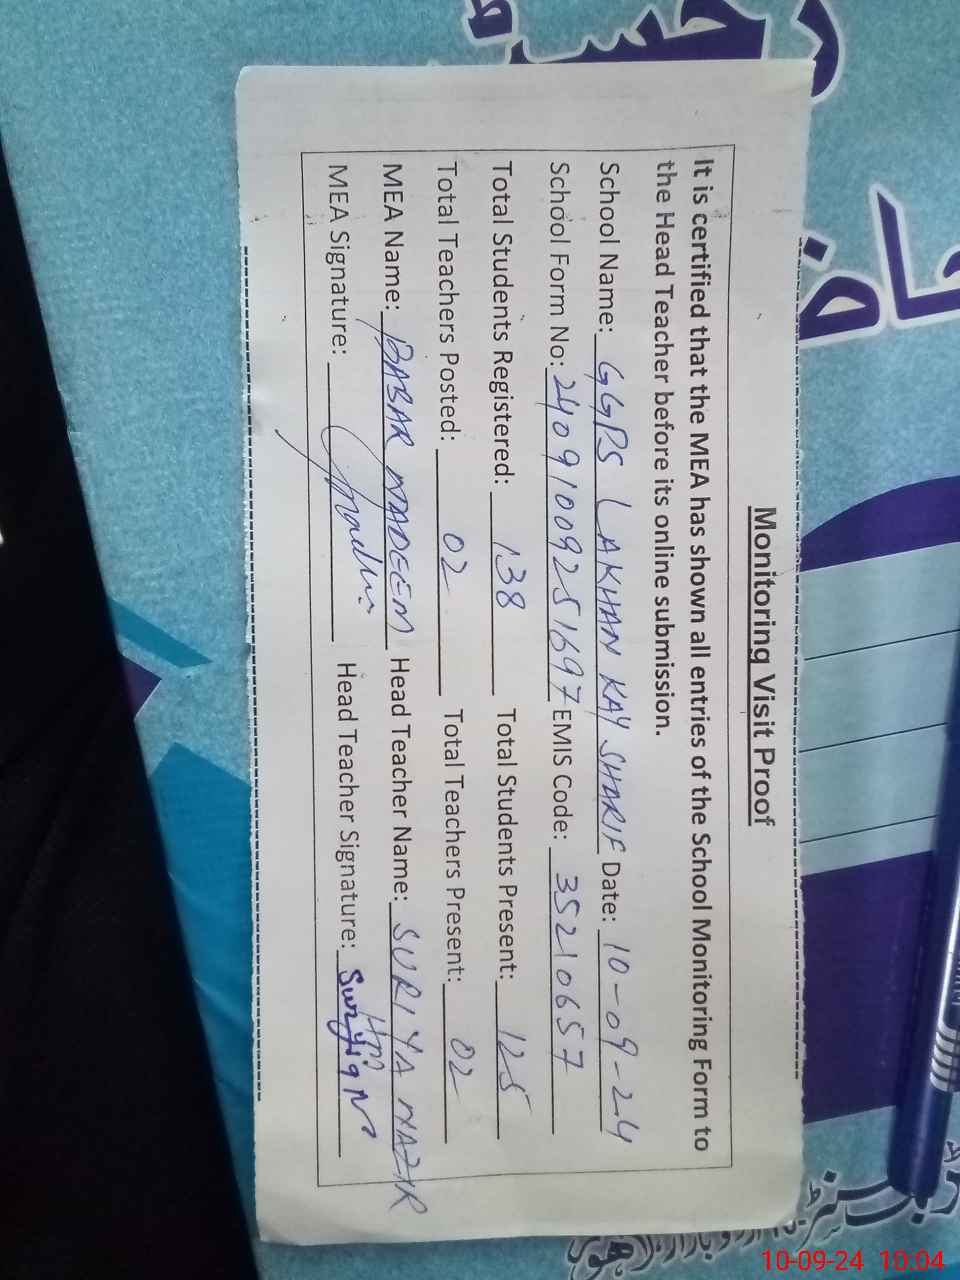 Monitoring Visit Proof
It is certified that the MEA has shown all entries of the School Monitoring Form to
the Head Teacher before its online submission.
School Name: GGPS LAKHAN KAY SHARIF Date: 10-09-24
School Form No: 24091009251697 EMIS Code: 35210657
Total Students Registered: 138 Total Students Present: 125
Total Teachers Posted: 02 Total Teachers Present: 02
MEA Name: BABAR NADEEM Head Teacher Name: SURIYA NAZIR
MEA Signature: Head Teacher Signature:
10-09-24 10:04